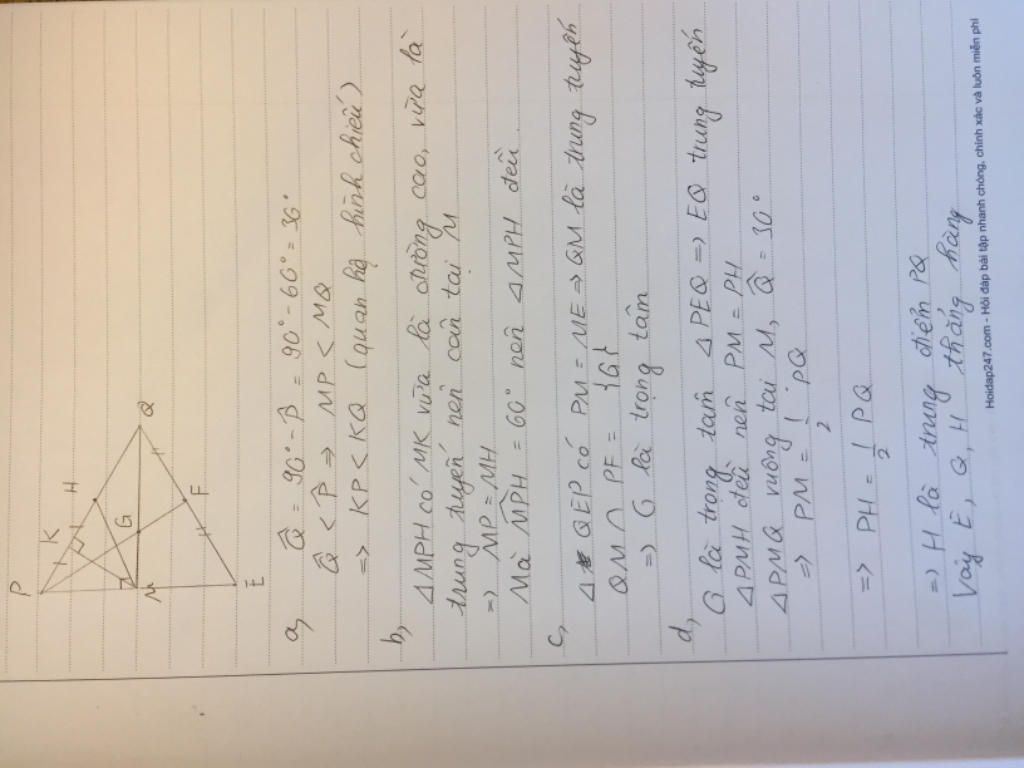 P
K
H
G
Q
M
F
E
a, Q̂ = 90° - P̂ = 90° - 60° = 30°
Q̂ < P̂ ⇒ MP < MQ
=> KP < KQ (quan hệ hình chiếu)
b,
ΔMPH có MK vừa là đường cao, vừa là
trung tuyến nên cân tại M
=> MP = MH
Mà MPH = 60° nên ΔMPH đều.
c,
Δ QEP có PM = ME => QM là trung tuyến
QM ∩ PF = {G}
=> G là trọng tâm
d,
G là trọng tâm Δ PEQ => EQ trung tuyến
ΔPMH đều nên PM = PH
ΔPMQ vuông tại M, Q̂ = 30°
=> PM = 1/2 PQ
=> PH = 1/2 PQ
=> H là trung điểm PQ
Vậy E, Q, H thẳng hàng
Hoidap247.com - Hỏi đáp bài tập nhanh chóng, chính xác và luôn miễn phí